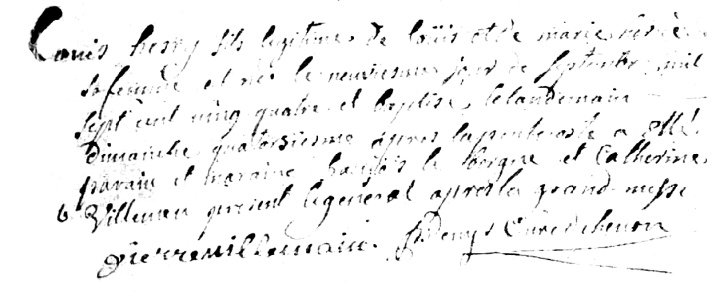 Louis henry fils legitime de loüis et de marie
sa femme et né le neuviesme jour de septembre mil
sept cent ving quatre et baptisé le landemain
dimanche quatorsiesme apres la pentecoste a etté
parain et maraine françois le borgne et Catherine
Villemain present le general apres la grand messe
pierre villemain. Denys Curé de chenon